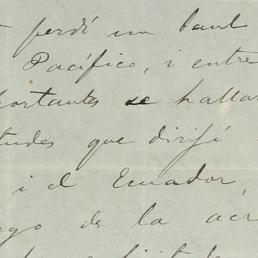 perdí un baul
Pacífico, i entre
portantes se hallar
tudes que dirijí
i el Ecuador,
go de la acr